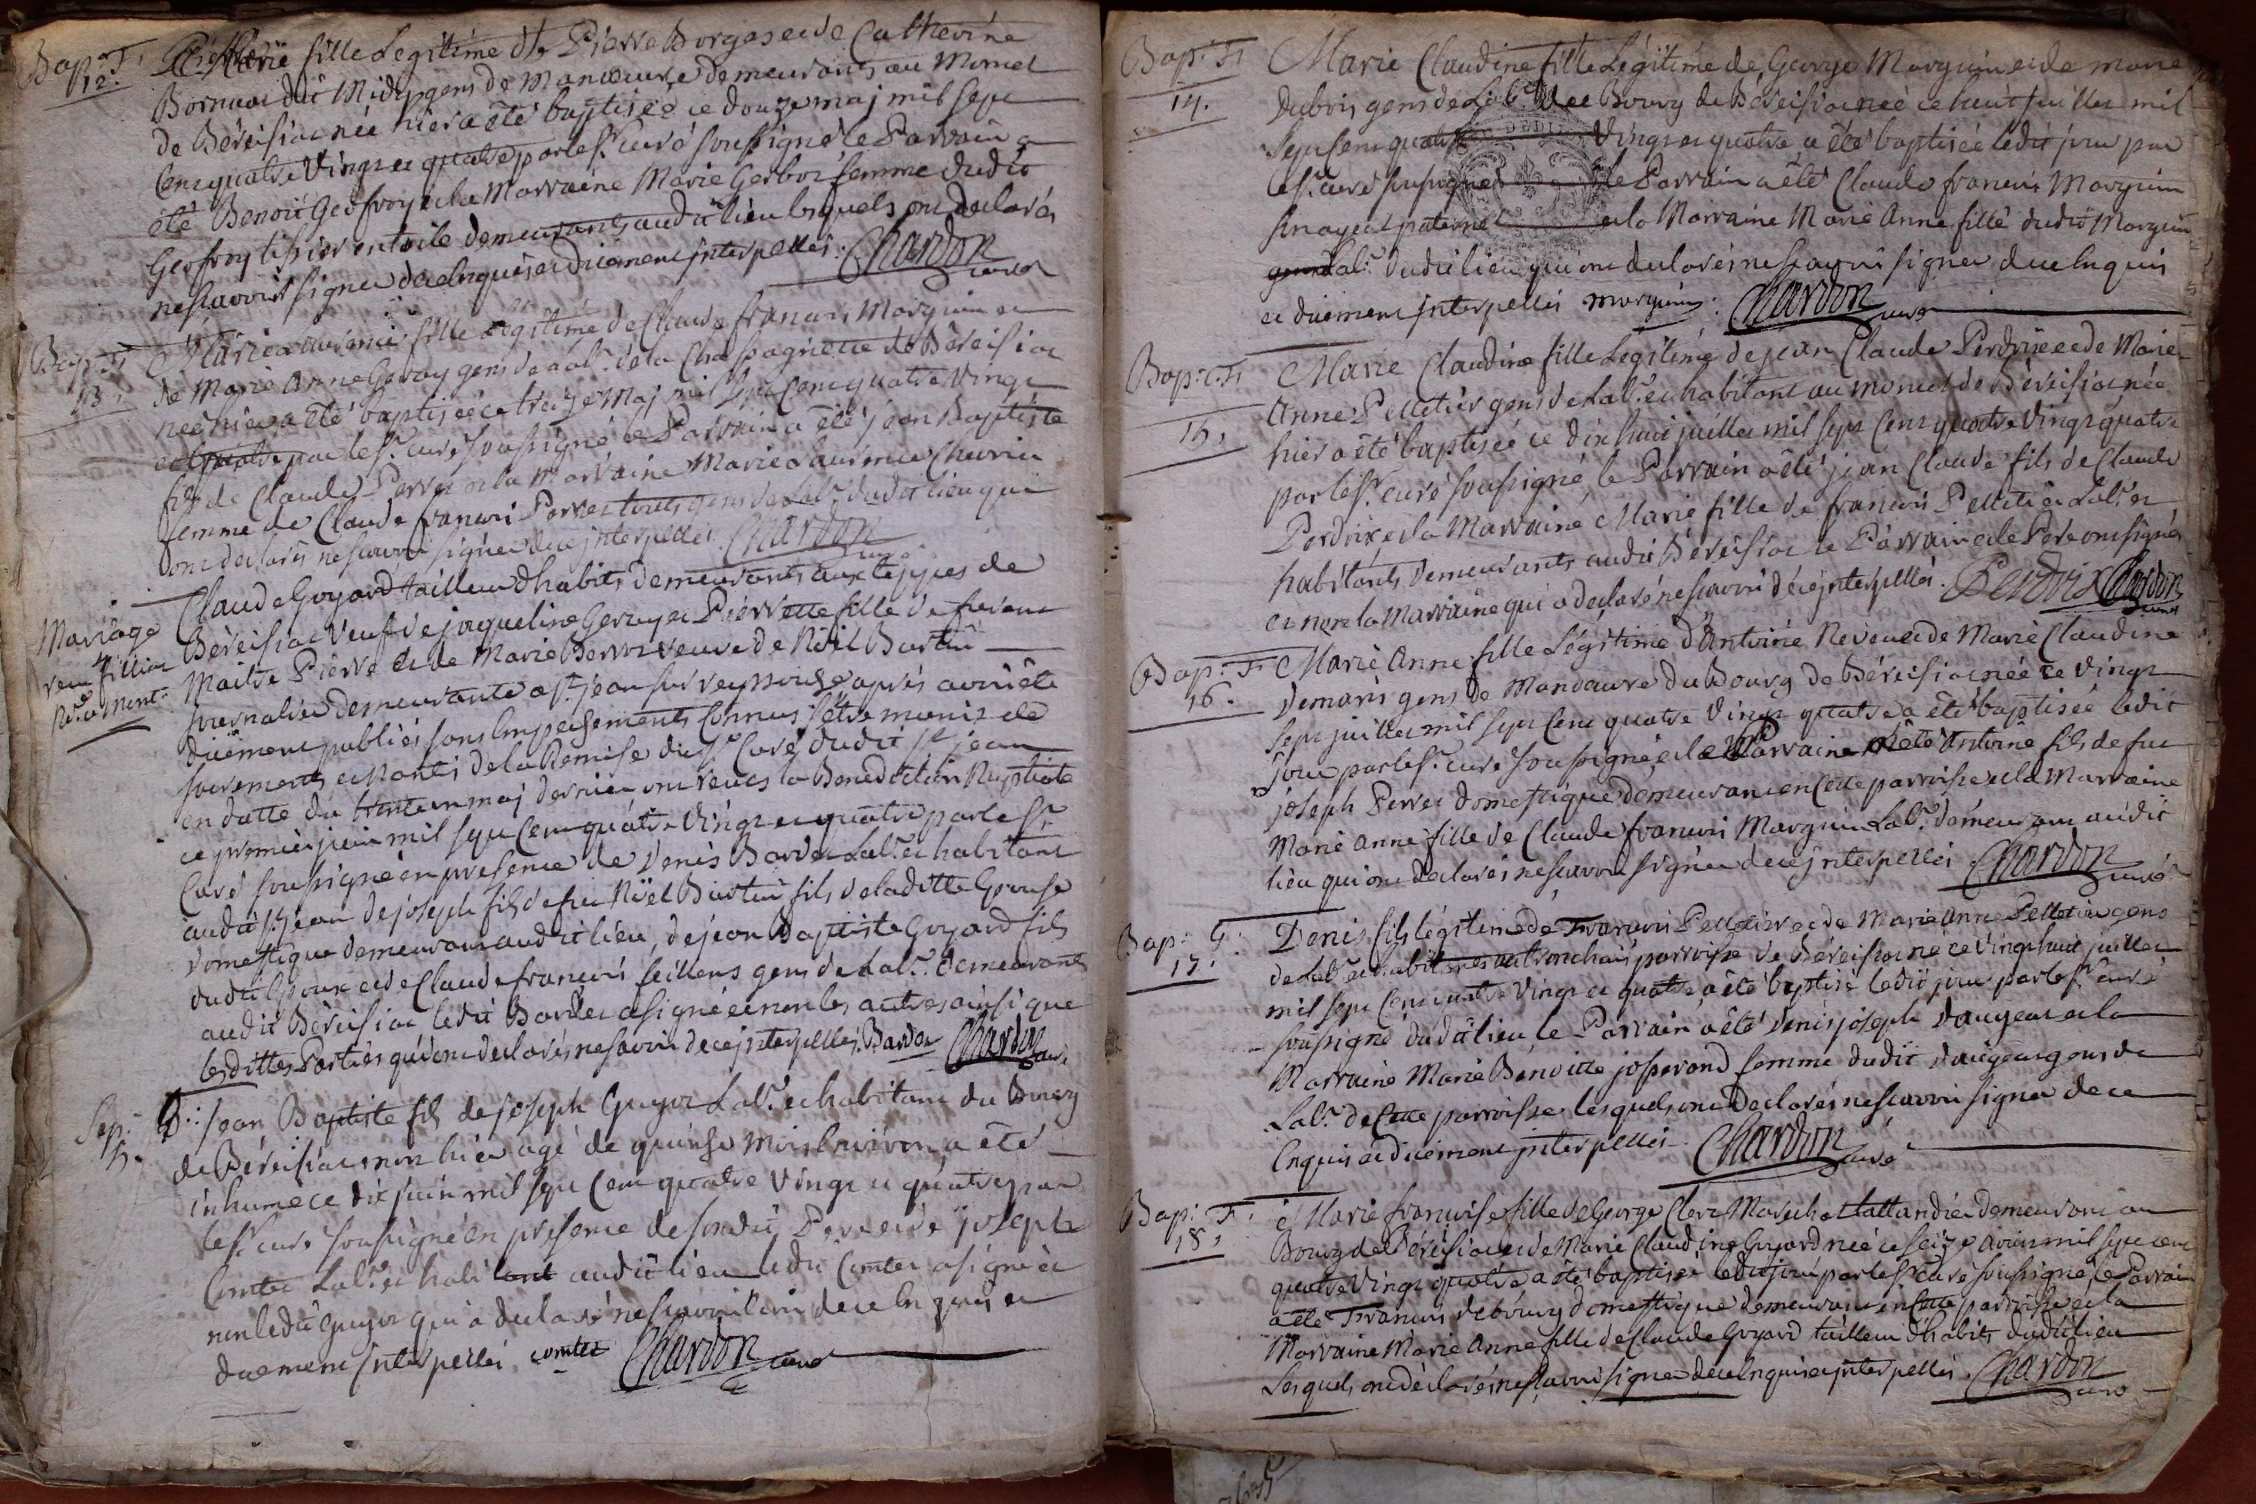 Bap: F.
12.
Marie fille Legitime de Pierre Borgas et de Catherine
Bornuat dit Midy gens de Manoeuvre demeurants au Mornet
de Béréisiac née hier a été baptisée ce douze maj mil sept
Cent quatre Vingt et quatre par le Sr curé soussigné le Parrain a
été Benoit Geofroy et la Marraine Marie Gerboi femme dudit
Geofroy tissier en toile demeurants audit lieu lesquels ont declarés
ne scavoir signer de ce enquis et düement interpellés. Chardon
curé
Bap: F.
13.
Marie fille legitime de Claude francois Morguin et
de Marie Anne Geray gens de Lab. de la Chapagnette de Béréisiac
née hier a été baptisée ce treize Maj mil sept Cent quatre Vingt
et quatre par le Sr curé soussigné le Parrain a été jean Baptiste
fils de Claude Perret et la Marraine Marie Laurence Chevrier
femme de Claude francois Perret touts gens de Lab. dudit lieu qui
ont declarés ne scavoir signer de ce interpellés. Chardon
curé
Mariage
Claude Goyard tailleur d'habits demeurants aux teppes de
Béréisiac veuf de jaqueline Geray et Pierrette fille de feu
Maitre Pierre et de Marie veuve de Noël Burtin
journaliere demeurante a St jean sur reyssouze aprés avoir été
düement publiés sans Empechements Connus s'être munis de
Sacrements et nantis de la Remise du Sr Curé dudit St jean
en datte du trente un maj dernier ont reçus la Benediction Nuptiale
ce premier juin mil sept Cent quatre Vingt et quatre par le Sr
Curé soussigné en presence de Denis Bardet Lab. et habitant
audit St jean de joseph fils de feu Noël Burtin fils de laditte Epouse
domestique demeurant audit lieu, de jean Baptiste Goyard fils
dudit Epoux et de Claude francois feillens gens de Lab. demeurants
audit Béréisiac ledit Bardet a signé et non les autres ainsi que
lesdittes Parties qui ont declarés ne savoir de ce interpellés. Bardet Chardon
curé
Sep:
5.
G: Jean Baptiste fils de joseph Guyot Lab. et habitant du Bourg
de Béréisiac mort hier agé de quinse mois Environ a été
inhumé ce dix juin mil sept Cent quatre Vingt et quatre par
le Sr curé soussigné en presence de sondit Pere et de joseph
Comtet Lab. et habitant audit lieu ledit Comtet a signé et
non ledit Guyot qui a declaré ne scavoir de ce Enquis et
düement interpellés comtet Chardon curé
Bap: F.
14.
Marie Claudine fille Légitime de George Morguin et de marie
Dubois gens de Lab. du Bourg de Béréisiac née ce huit juillet mil
Sept Cent quatre Vingt et quatre a été baptisée ledit jour par
le Sr curé soussigné le Parrain a été Claude francois Morguin
son ayeul paternel et la Marraine Marie Anne fille dudit Morguin
Lab. dudit lieu qui ont declarés ne scavoir signer de ce Enquis
et düement interpellés morguin. Chardon
curé
Bap: F.
15.
Marie Claudine fille Legitime de jean Claude Perdrix et de Marie
Anne Pelletier gens de Lab. et habitant au mornet de Béréisiac née
hier a été baptisée ce dix huit juillet mil sept Cent quatre Vingt quatre
par le Sr curé soussigné, le Parrain a été jean Claude fils de Claude
Perdrix et la Marraine Marie fille de francois Pelletier Lab. et
habitants demeurants audit Béréisiac le Parrain et le Pere ont signé
et non la Marraine qui a declaré ne scavoir de ce interpellés. Perdrix Chardon
curé
Bap: F.
16.
Marie Anne fille Légitime d'Antoine Neveu et de Marie Claudine
Demaris gens de Manoeuvre du Bourg de Béréisiac née ce vingt
sept juillet mil sept Cent quatre Vingt quatre a été baptisée ledit
jour par le Sr curé soussigné et le Parrain a été Antoine fils de feu
joseph Perret domestique demeurant en Cette parroisse et la Marraine
Marie Anne fille de Claude francois Morguin Lab. demeurant audit
lieu qui ont declarés ne scavoir signer de ce interpellés Chardon
curé
Bap: G.
17.
Denis fils légitime de Francois Pelletier et de Marie Anne Pelletier gens
de Lab. et habitants au tronchais parroisse de Béréisiac né ce vingt huit juillet
mil sept Cent quatre Vingt et quatre a été baptisé ledit jour par le Sr curé
soussigné dudit lieu, le Parrain a été Denis joseph Daugeat et la
Marraine Marie Benoitte josserand femme dudit Daugeat gens de
Lab. de Cette parroisse lesquels ont declarés ne scavoir signer de ce
Enquis et düement interpellés Chardon
curé
Bap: F.
18.
Marie francoise fille de George Clerc Marechal tallandier demeurant au
Bourg de Béréisiac et de Marie Claudine Goyard née ce seize aoust mil sept cent
quatre Vingt quatre a été baptisée ledit jour par le Sr curé soussigné, le Parrain
a été Francois debourg domestique demeurant en Cette parroisse et la
Marraine Marie Anne fille de Claude Goyard tailleur d'habits dudit lieu
Lesquels ont declarés ne scavoir signer de ce Enquis et interpellés. Chardon
curé